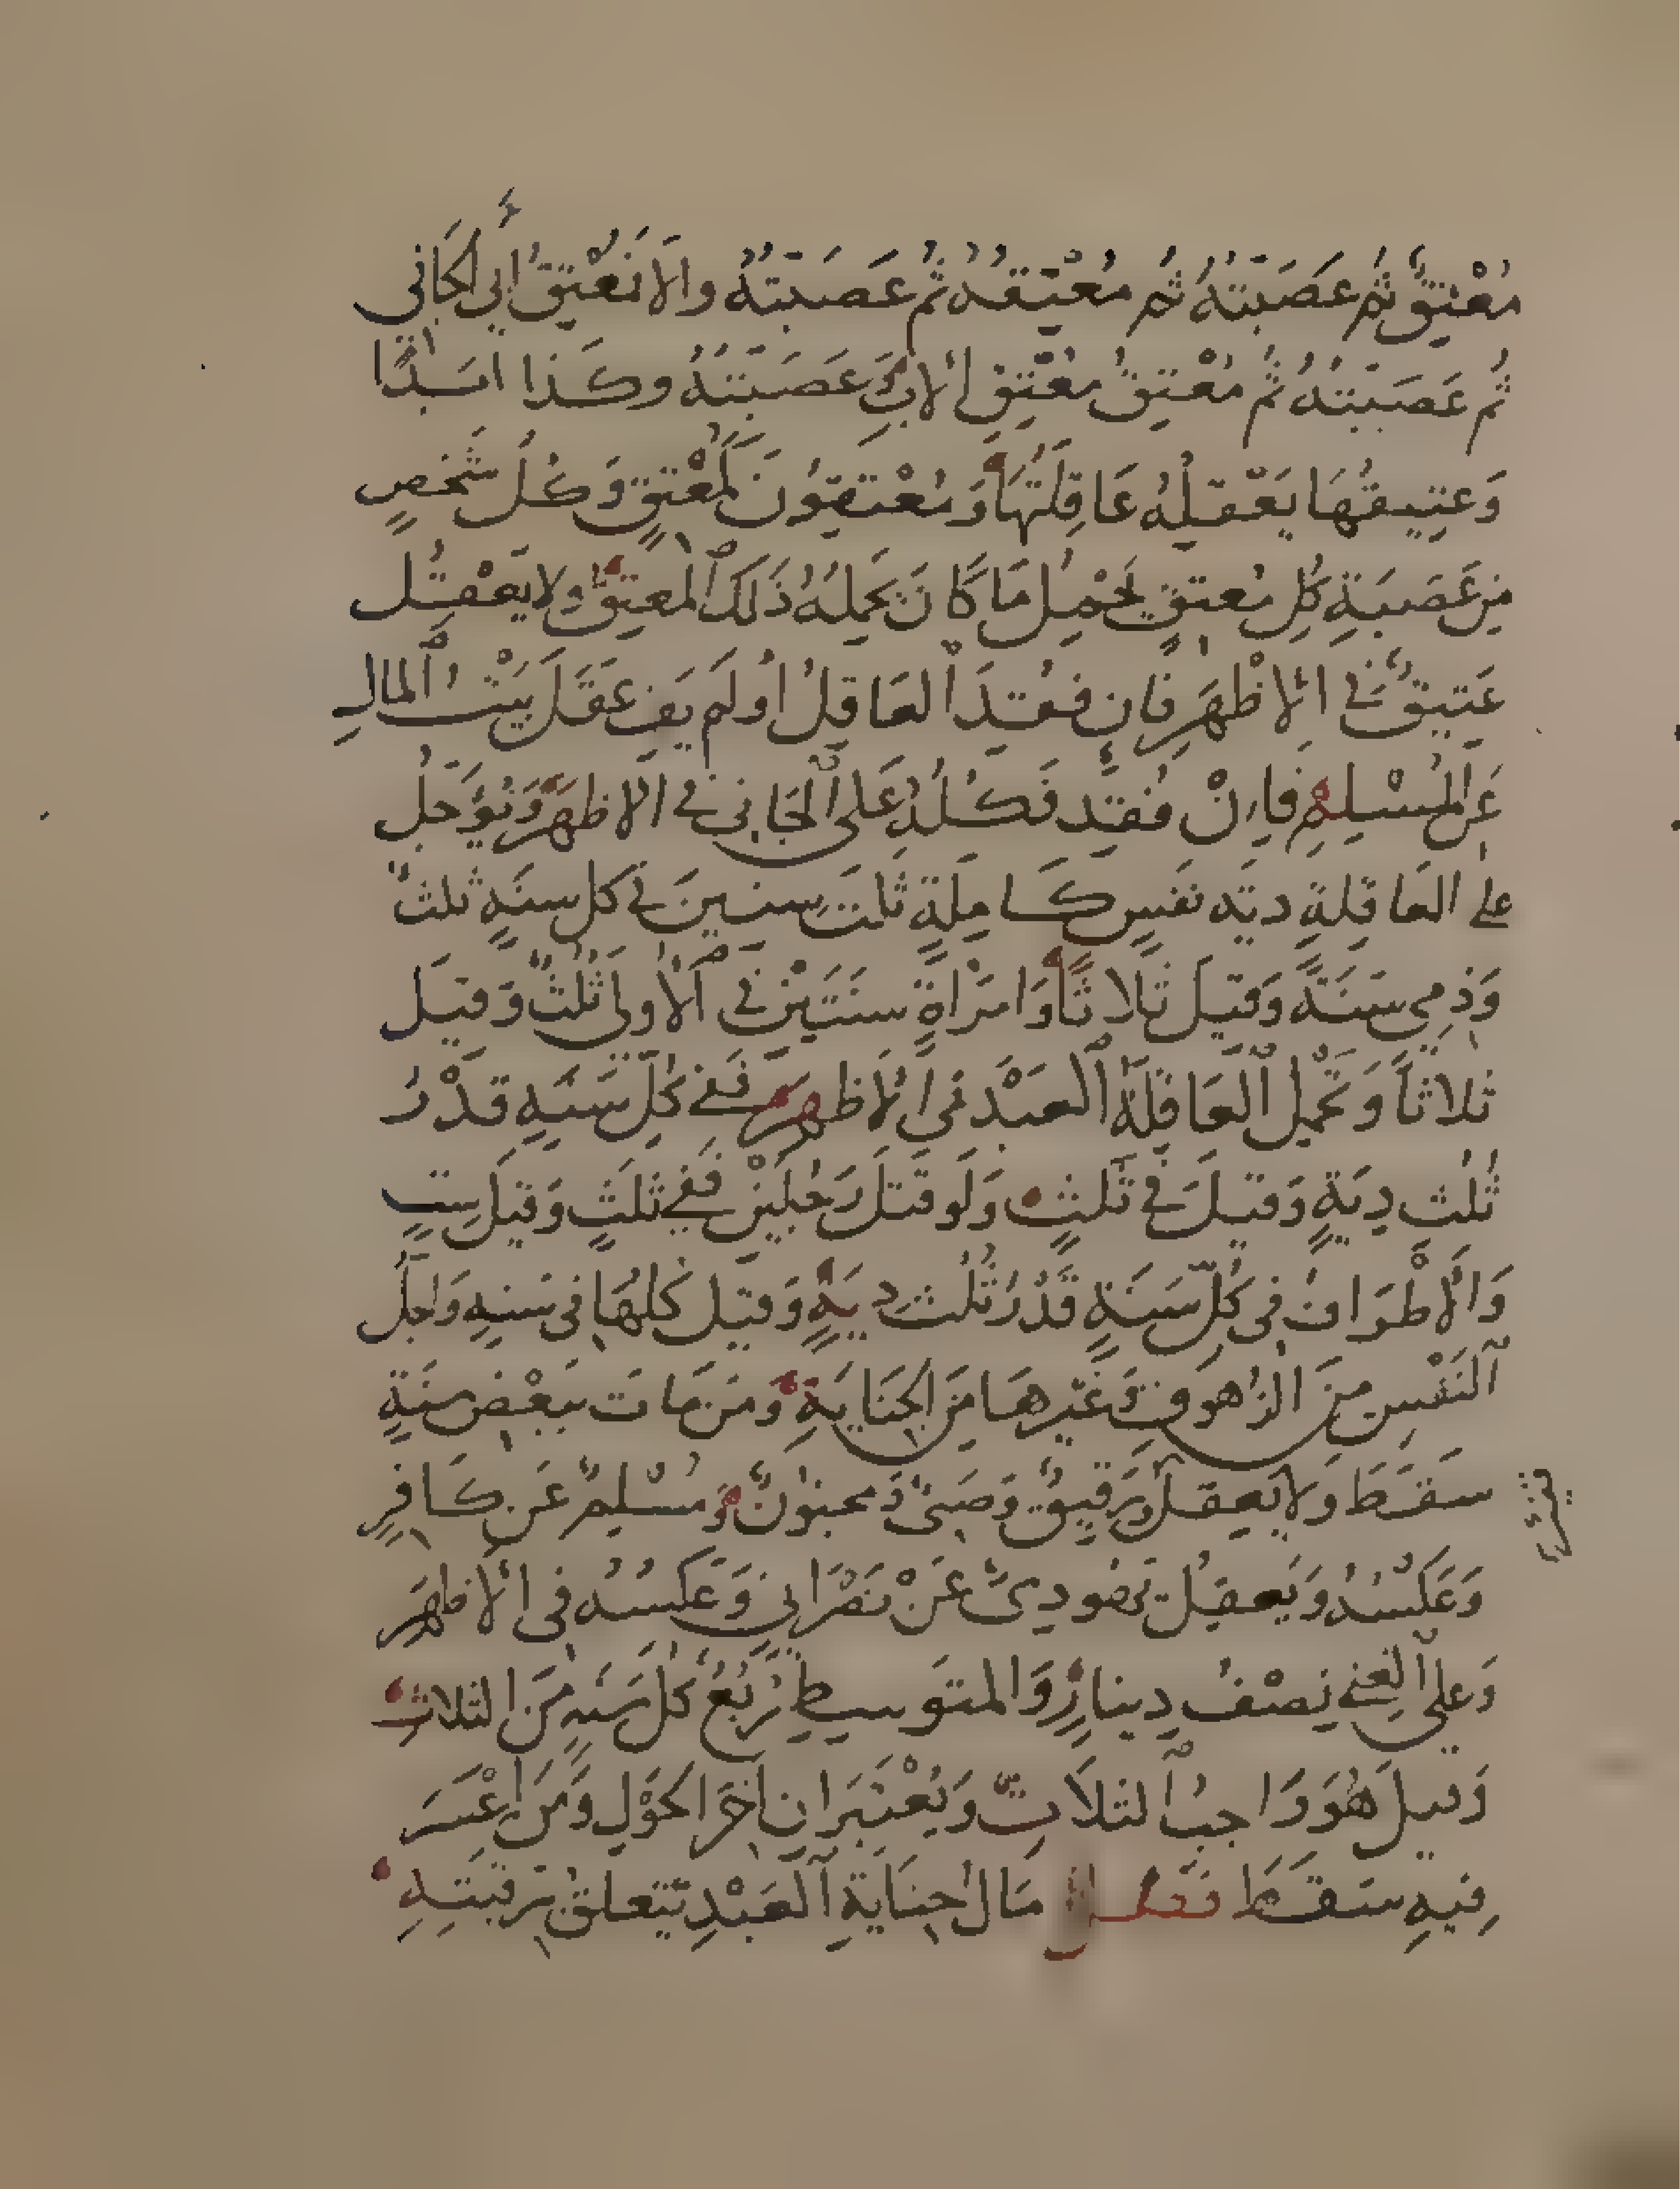 مُعْتِقٌ ثُمَّ عَصَبَتُهُ ثُمَّ مُعْتِقُهُ ثُمَّ عَصَبَتُهُ وَإِلَّا فَمُعْتِقُ أَبِي الْجَانِي
ثُمَّ عَصَبَتُهُ ثُمَّ مُعْتِقُ مُعْتِقِ الْأَبِ وَعَصَبَتُهُ وَكَذَا أَبَدًا
وَعَتِيقُهَا يَعْقِلُهُ عَاقِلَتُهَا وَمُعْتِقُونَ كَمُعْتِقٍ وَكُلُّ شَخْصٍ
مِنْ عَصَبَةِ كُلِّ مُعْتِقٍ يَحْمِلُ مَا كَانَ يَحْمِلُهُ ذَلِكَ الْمُعْتِقُ وَلَا يَعْقِلُ
عَتِيقٌ فِي الْأَظْهَرِ فَإِنْ فُقِدَ الْعَاقِلُ أَوْ لَمْ يَفِ عَقَلَ بَيْتُ الْمَالِ
عَنِ الْمُسْلِمِ فَإِنْ فُقِدَ فَكُلُّهُ عَلَى الْجَانِي فِي الْأَظْهَرِ وَيُؤَجَّلُ
عَلَى الْعَاقِلَةِ دِيَةُ نَفْسٍ كَامِلَةٍ ثَلَثَ سِنِينَ فِي كُلِّ سَنَةٍ ثُلُثٌ
وَذِمِّيٍّ سَنَةً وَقِيلَ ثَلَاثًا وَامْرَأَةٍ سَنَتَيْنِ فِي الْأُولَى ثُلُثٌ وَقِيلَ
ثَلَاثًا وَتَحْمِلُ الْعَاقِلَةُ الْعَبْدَ فِي الْأَظْهَرِ فَفِي كُلِّ سَنَةٍ قَدْرُ
ثُلُثِ دِيَةٍ وَقِيلَ فِي ثَلَثٍ وَلَوْ قَتَلَ رَجُلَيْنِ فَفِي ثَلَثٍ وَقِيلَ سِتٍّ
وَالْأَطْرَافُ فِي كُلِّ سَنَةٍ قَدْرُ ثُلُثِ دِيَةٍ وَقِيلَ كُلُّهَا فِي سَنَةٍ وَأَجَلُ
النَّفْسِ مِنَ الزُّهُوقِ وَغَيْرِهَا مِنَ الْجِنَايَةِ وَمَنْ مَاتَ بِبَعْضِ سَنَةٍ
سَقَطَ وَلَا يَعْقِلُ رَقِيقٌ وَصَبِيٌّ وَمَجْنُونٌ وَمُسْلِمٌ عَنْ كَافِرٍ
وَعَكْسُهُ وَيَعْقِلُ يَهُودِيٌّ عَنْ نَصْرَانِيٍّ وَعَكْسُهُ فِي الْأَظْهَرِ
وَعَلَى الْغَنِيِّ نِصْفُ دِينَارٍ وَالْمُتَوَسِّطِ رُبُعٌ كُلَّ سَنَةٍ مِنَ الثَّلَاثِ
وَقِيلَ هُوَ وَاجِبُ الثَّلَاثِ وَيُعْتَبَرَانِ آخِرَ الْحَوْلِ وَمَنْ أَعْسَرَ
فِيهِ سَقَطَ فَصْلٌ مَالُ جِنَايَةِ الْعَبْدِ يَتَعَلَّقُ بِرَقَبَتِهِ